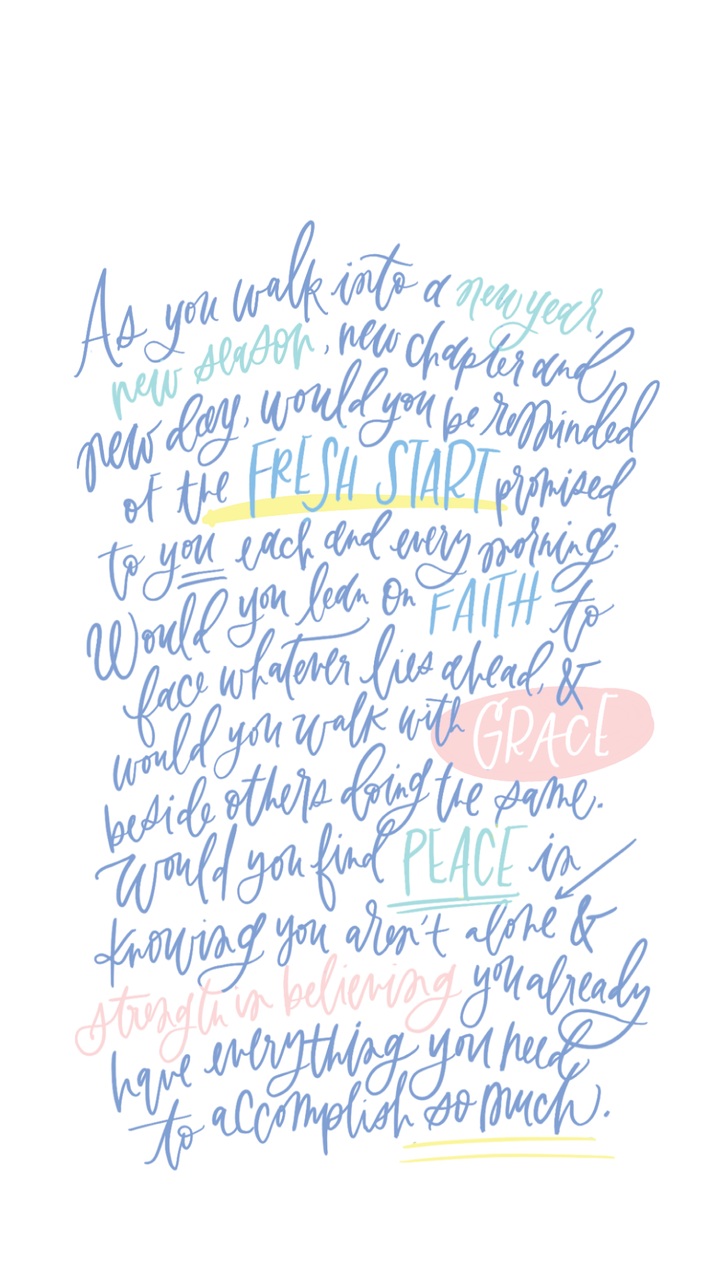 As you walk into a new year,
new season, new chapter and
new day, would you be reminded
of the FRESH START promised
to you each and every morning.
Would you lean on FAITH to
face whatever lies ahead, &
would you walk with GRACE
beside others doing the same.
Would you find PEACE in
knowing you aren't alone &
strength in believing you already
have everything you need
to accomplish so much.